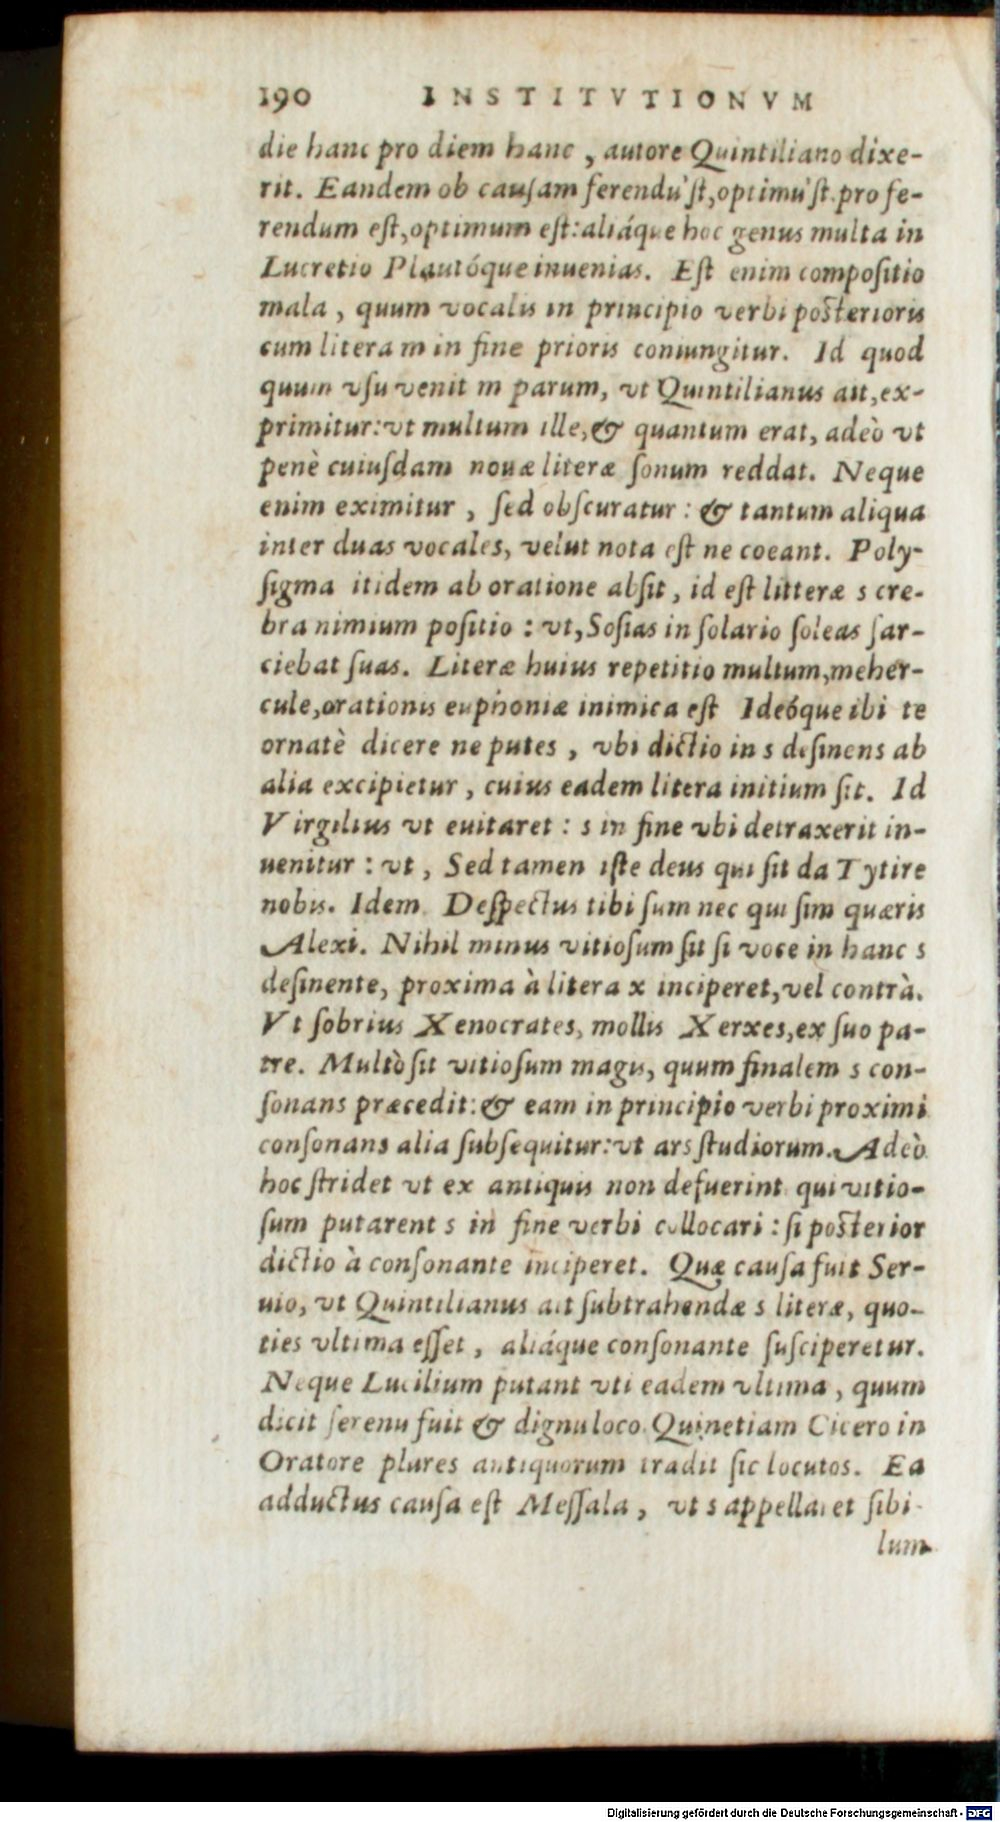 190 INSTITVTIONVM
die hanc pro diem hanc, autore Quintiliano dixe-
rit. Eandem ob cauſam ferendu'ſt,optimu'ſt.pro fe-
rendum eſt,optimum eſt:aliáque hoc genus multa in
Lucretio Plautóque inuenias. Eſt enim compoſitio
mala, quum vocalis in principio verbi poſterioris
cum litera m in fine prioris coniungitur. Id quod
quum vſu venit m parum, vt Quintilianus ait,ex-
primitur:vt multum ille,& quantum erat, adeò vt
penè cuiuſdam nouæ literæ ſonum reddat. Neque
enim eximitur, ſed obſcuratur: & tantum aliqua
inter duas vocales, velut nota eſt ne coeant. Poly-
ſigma itidem ab oratione abſit, id eſt litteræ s cre-
bra nimium poſitio : vt,Soſias in ſolario ſoleas ſar-
ciebat ſuas. Literæ huius repetitio multum,meher-
cule,orationis euphoniæ inimica eſt Ideóque ibi te
ornatè dicere ne putes, vbi dictio in s deſinens ab
alia excipietur, cuius eadem litera initium ſit. Id
Virgilius vt euitaret : s in fine vbi detraxerit in-
uenitur : vt, Sed tamen iſte deus qui ſit da Tytire
nobis. Idem. Deſpectus tibi ſum nec qui ſim quæris
Alexi. Nihil minus vitioſum ſit ſi voce in hanc s
deſinente, proxima à litera x inciperet,vel contrà.
Vt ſobrius Xenocrates, mollis Xerxes,ex ſuo pa-
tre. Multò ſit vitioſum magis, quum finalem s con-
ſonans præcedit:& eam in principio verbi proximi
conſonans alia ſubſequitur:vt ars ſtudiorum.Adeò
hoc ſtridet vt ex antiquis non defuerint qui vitio-
ſum putarent s in fine verbi collocari : ſi poſterior
dictio à conſonante inciperet. Quæ cauſa fuit Ser-
uio, vt Quintilianus ait ſubtrahendæ s literæ, quo-
ties vltima eſſet, aliáque conſonante ſuſciperetur.
Neque Lucilium putant vti eadem vltima, quum
dicit ſerenu fuit & dignu loco.Quinetiam Cicero in
Oratore plures antiquorum tradit ſic locutos. Ea
adductus cauſa eſt Meſſala, vt s appellaret ſibi-
lum
Digitalisierung gefördert durch die Deutsche Forschungsgemeinschaft - DFG